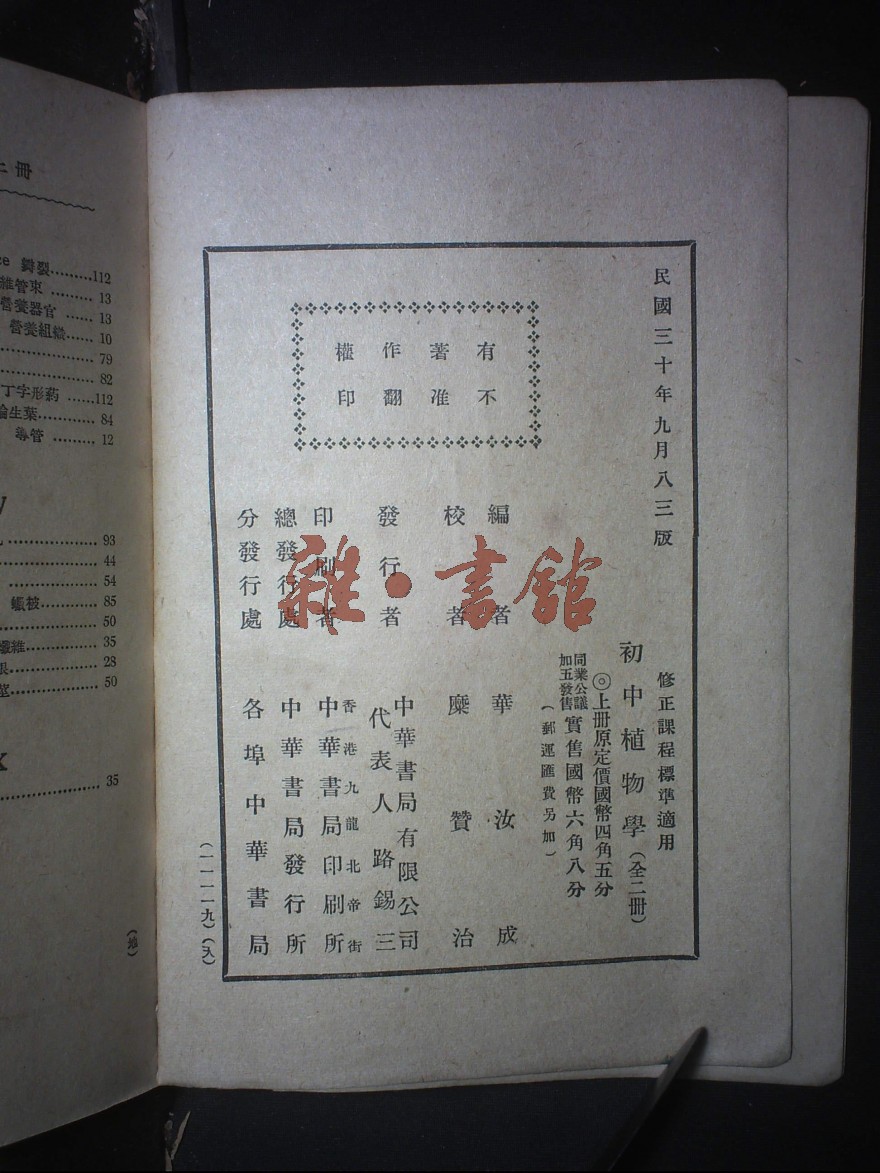 民國三十年九月八三版
修正課程標準適用
初中植物學（全二冊）
◎上册原定價國幣四角五分
同業公議
加五發售
實售國幣六角八分
（郵運匯費另加）
有著作權
不准翻印
編者 華汝成
校者 糜贊治
發行者 中華書局有限公司
代表人路錫三
印刷者 香港九龍北帝街
中華書局印刷所
總發行處 中華書局發行所
分發行處 各埠中華書局
（一一一一九）（入）
雜·書館
上冊
瓣裂………112
維管束………13
營養器官……13
營養組織……10
79
82
丁字形葯……112
輪生葉………84
導管………12
93
44
54
蠟被………85
50
纖維………35
28
50
X
35